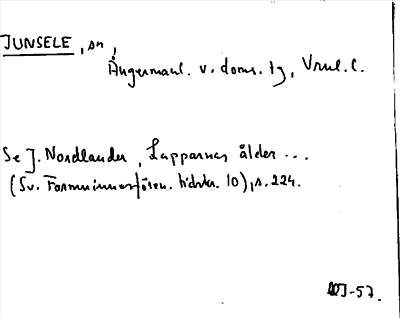 JUNSELE, sn,
Ångermanl. v. doms. tg, Vrnl. l.
Se J. Nordlander, Lapparnas ålder ...
(Sv. Fornminnesfören. tidskr. 10), s. 224.
-57.